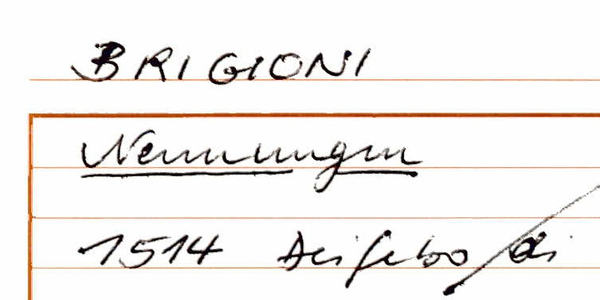 BRIGIONI
Nennungen
1514 Deifebo di